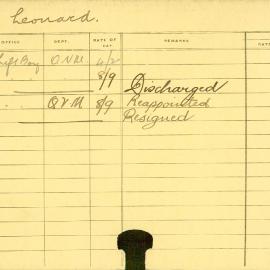 Leonard.
OFFICE DEPT. RATE OF PAY REMARKS
Lift Boy Q.V.M 4/2
" " 8/9 Discharged
" " Q.V.M 8/9 Reappointed
Resigned